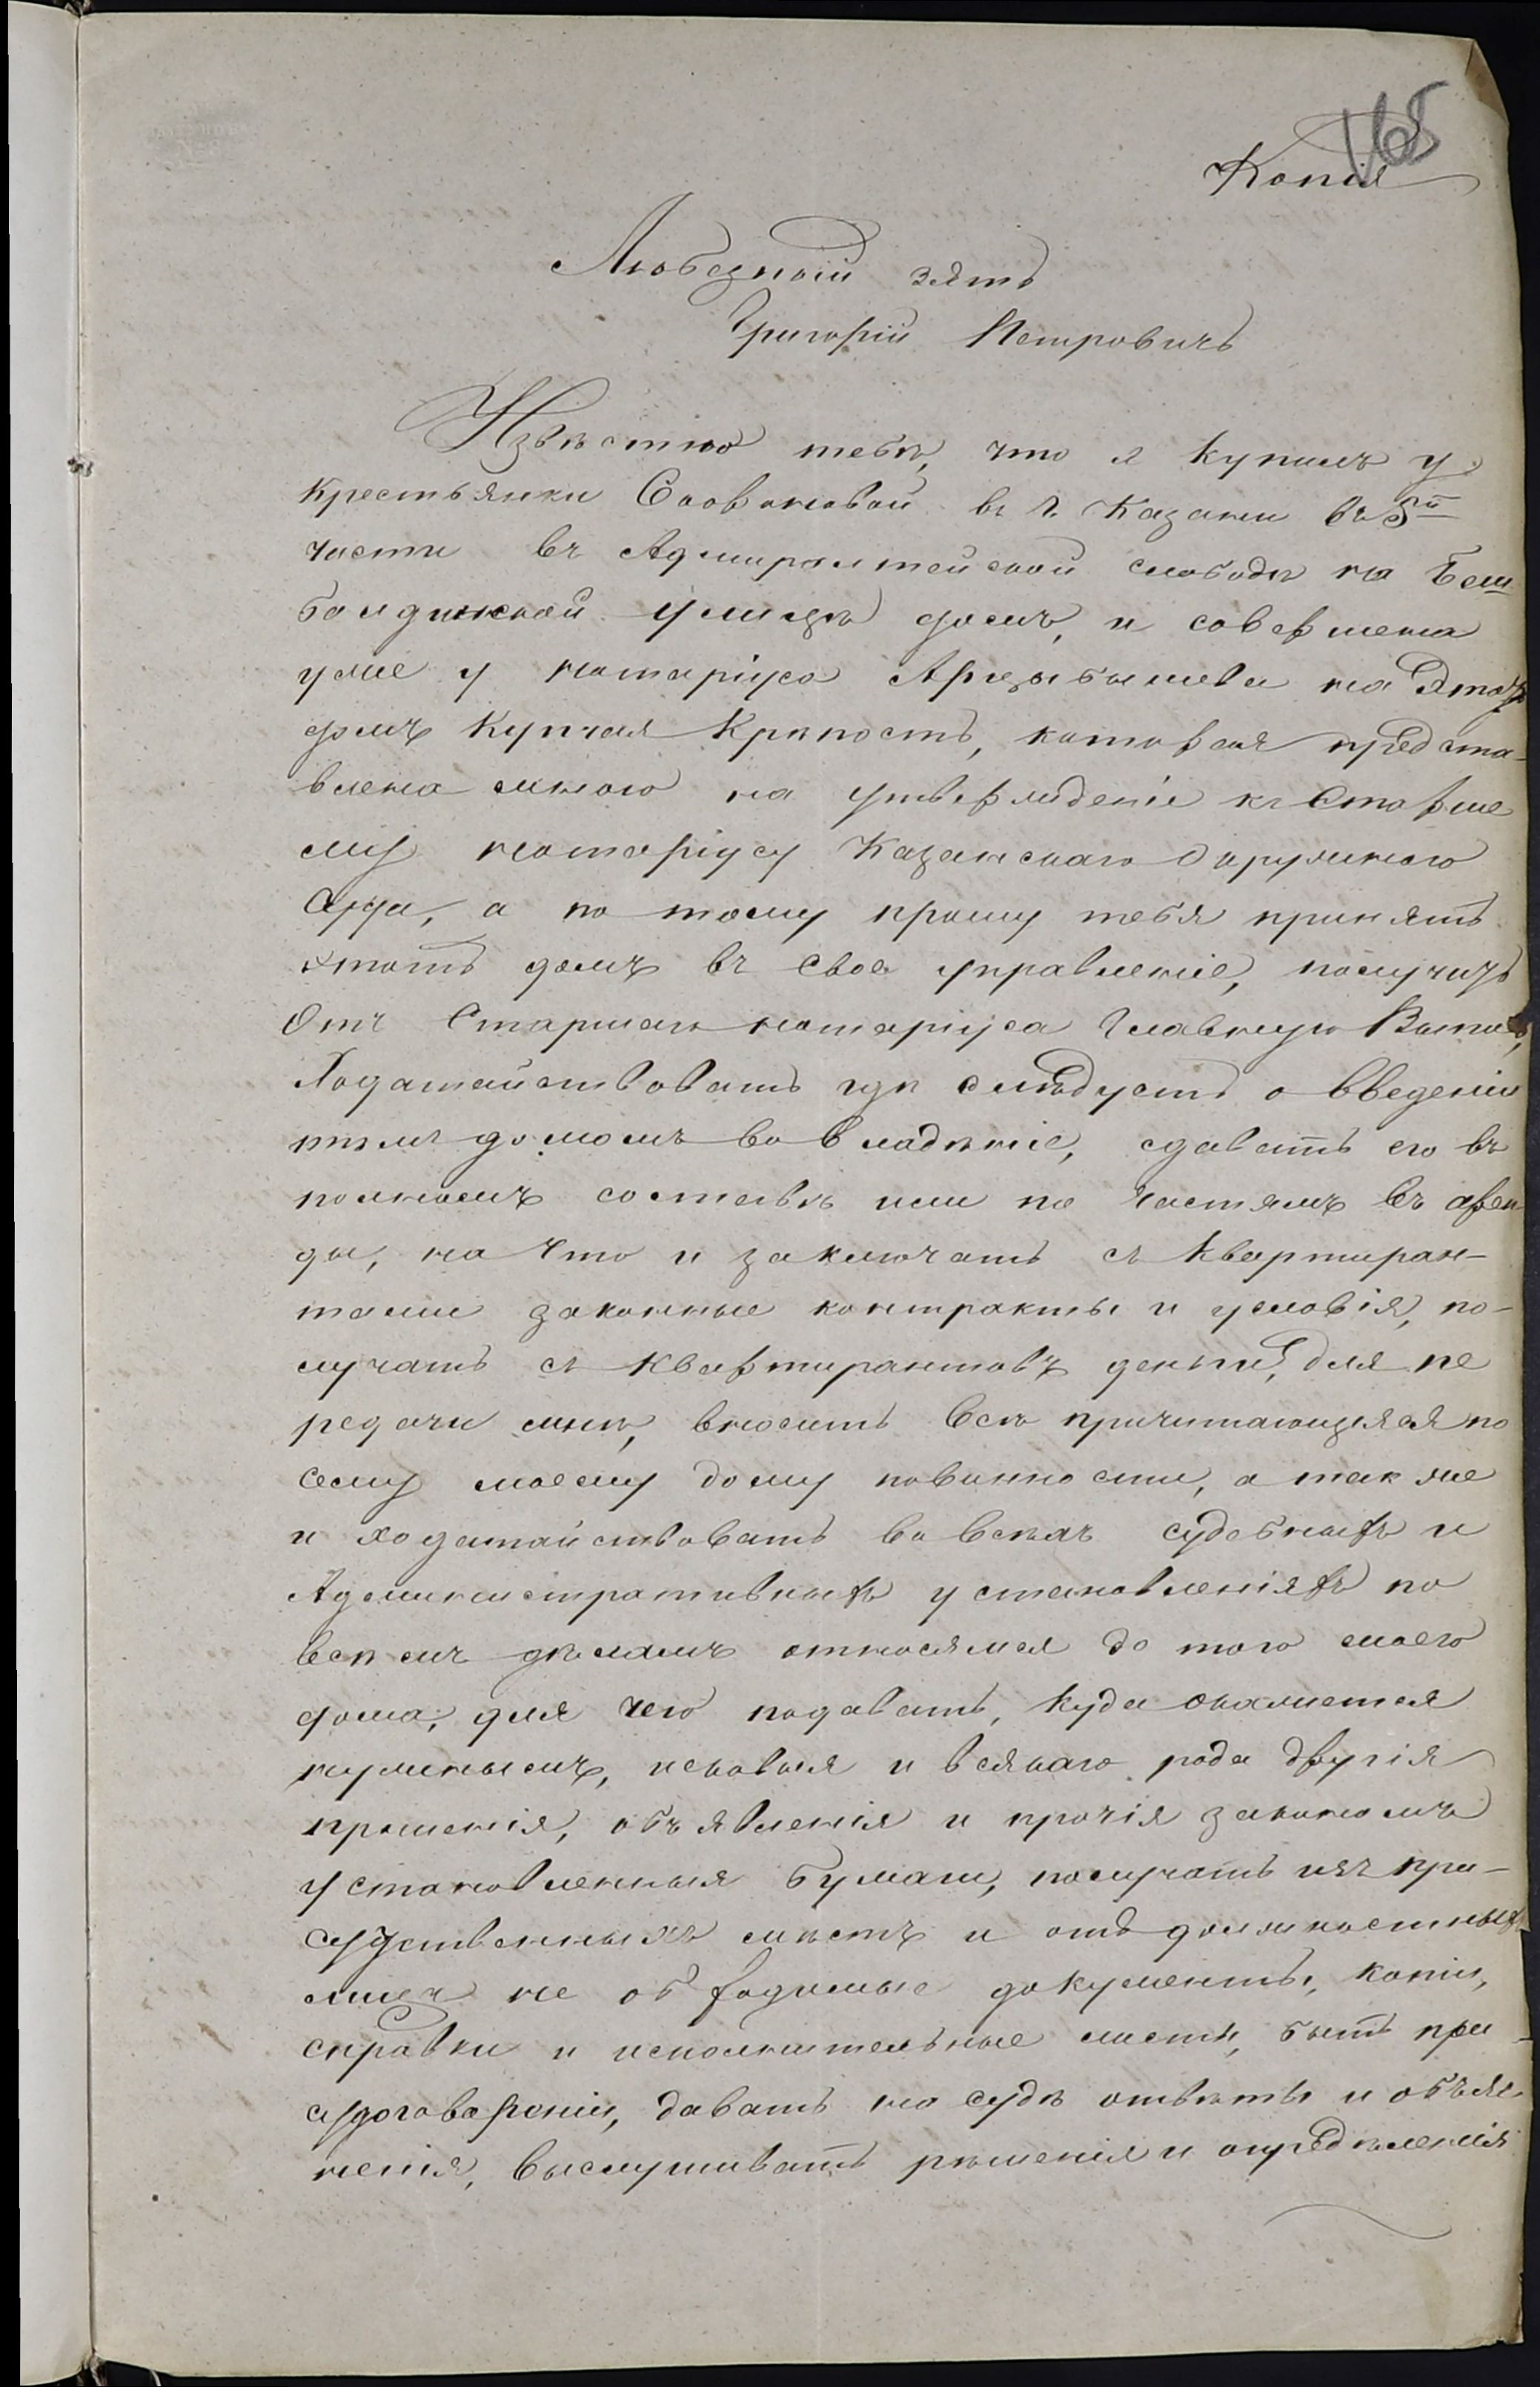 165
Копія
Любезный зять
Григорій Петровичъ
Извѣстию тебѣ, что я купилъ у
крестьянки в г. Казани въ 5й
части въ Адмиралтейской слободѣ на Беш
болдинской улицѣ домъ, и совершена
уже у нотаріуса Арцыбышева на Этотъ
домъ Купчая Крѣпость, которая предста-
влена мною на утвержденіе къ Старше
му нотаріусу Казанскаго Окружного
Суда, а по тому прошу тебя принять
этотъ домъ въ Свое управленіе, получить
Отъ Старшаго нотаріуса Главную Выпись,
Ходатайствовать гдѣ слѣдуетъ о введеніи
этимъ домомъ во владѣніе, сдавать его въ
полномъ составѣ или по частямъ въ арен
ды, на что и заключать съ Квартиран-
тами законные контракты и условія, по-
лучать съ Квартирантовъ деньги, для пе
редачи мнѣ, вносить всѣ причитающіяся по
сему моему дому повинности, а так же
и ходатайствовать во всѣхъ судебныхъ и
Административныхъ установленіяхъ по
всѣмъ дѣламъ относямся до того моего
дома, для чего подавать, куда окажется
нужнымъ, исковыя и всякаго рода другія
прошенія, объявленія и прочія закономъ
установленныя бумаги, получать изъ при-
сутственныхъ мѣстъ и отъ должностныхъ
лицъ не обходимые документы, копіи,
справки и исполнительные листы, быть при
судоговореніи, давать на судѣ отвѣты и объяс
ненія, выслушивать рѣшенія и опредѣленія